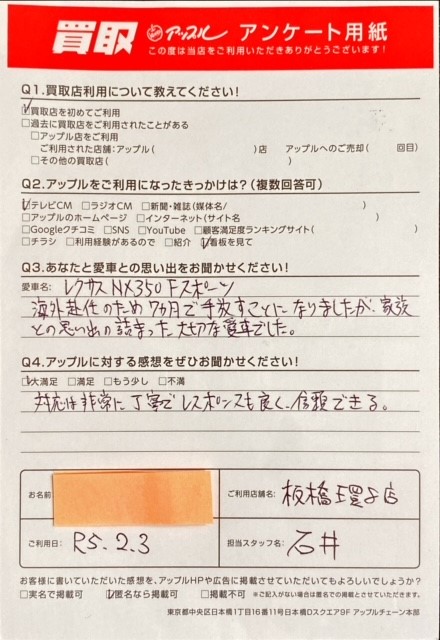 買取 アップル アンケート用紙
この度は当店をご利用いただきありがとうございます!
Q1.買取店利用について教えてください!
☑買取店を初めてご利用
□過去に買取店をご利用されたことがある
□アップル店をご利用
ご利用された店舗:アップル( )店 アップルへのご売却( 回目)
□その他の買取店( )
Q2.アップルをご利用になったきっかけは?(複数回答可)
☑テレビCM □ラジオCM □新聞・雑誌(媒体名/ )
□アップルのホームページ □インターネット(サイト名 )
□Googleクチコミ □SNS □YouTube □顧客満足度ランキングサイト( )
□チラシ □利用経験があるので □紹介 ☑看板を見て
Q3.あなたと愛車との思い出をお聞かせください!
愛車名: レクサス NX350 Fスポーツ
海外赴任のため7カ月で手放すことになりましたが、家族
との思い出の詰まった大切な愛車でした。
Q4.アップルに対する感想をぜひお聞かせください!
☑大満足 □満足 □もう少し □不満
対応は非常に丁寧でレスポンスも良く、信頼できる。
お名前
ご利用店舗名: 板橋環8店
ご利用日: R5.2.3
担当スタッフ名: 石井
お客様に書いていただいた感想を、アップルHPや広告に掲載させていただいてもよろしいでしょうか?
□実名で掲載可 ☑匿名なら掲載可 □掲載不可 ※ご記入がない場合は匿名での掲載とさせていただきます。
東京都中央区日本橋1丁目16番11号日本橋Dスクエア9F アップルチェーン本部